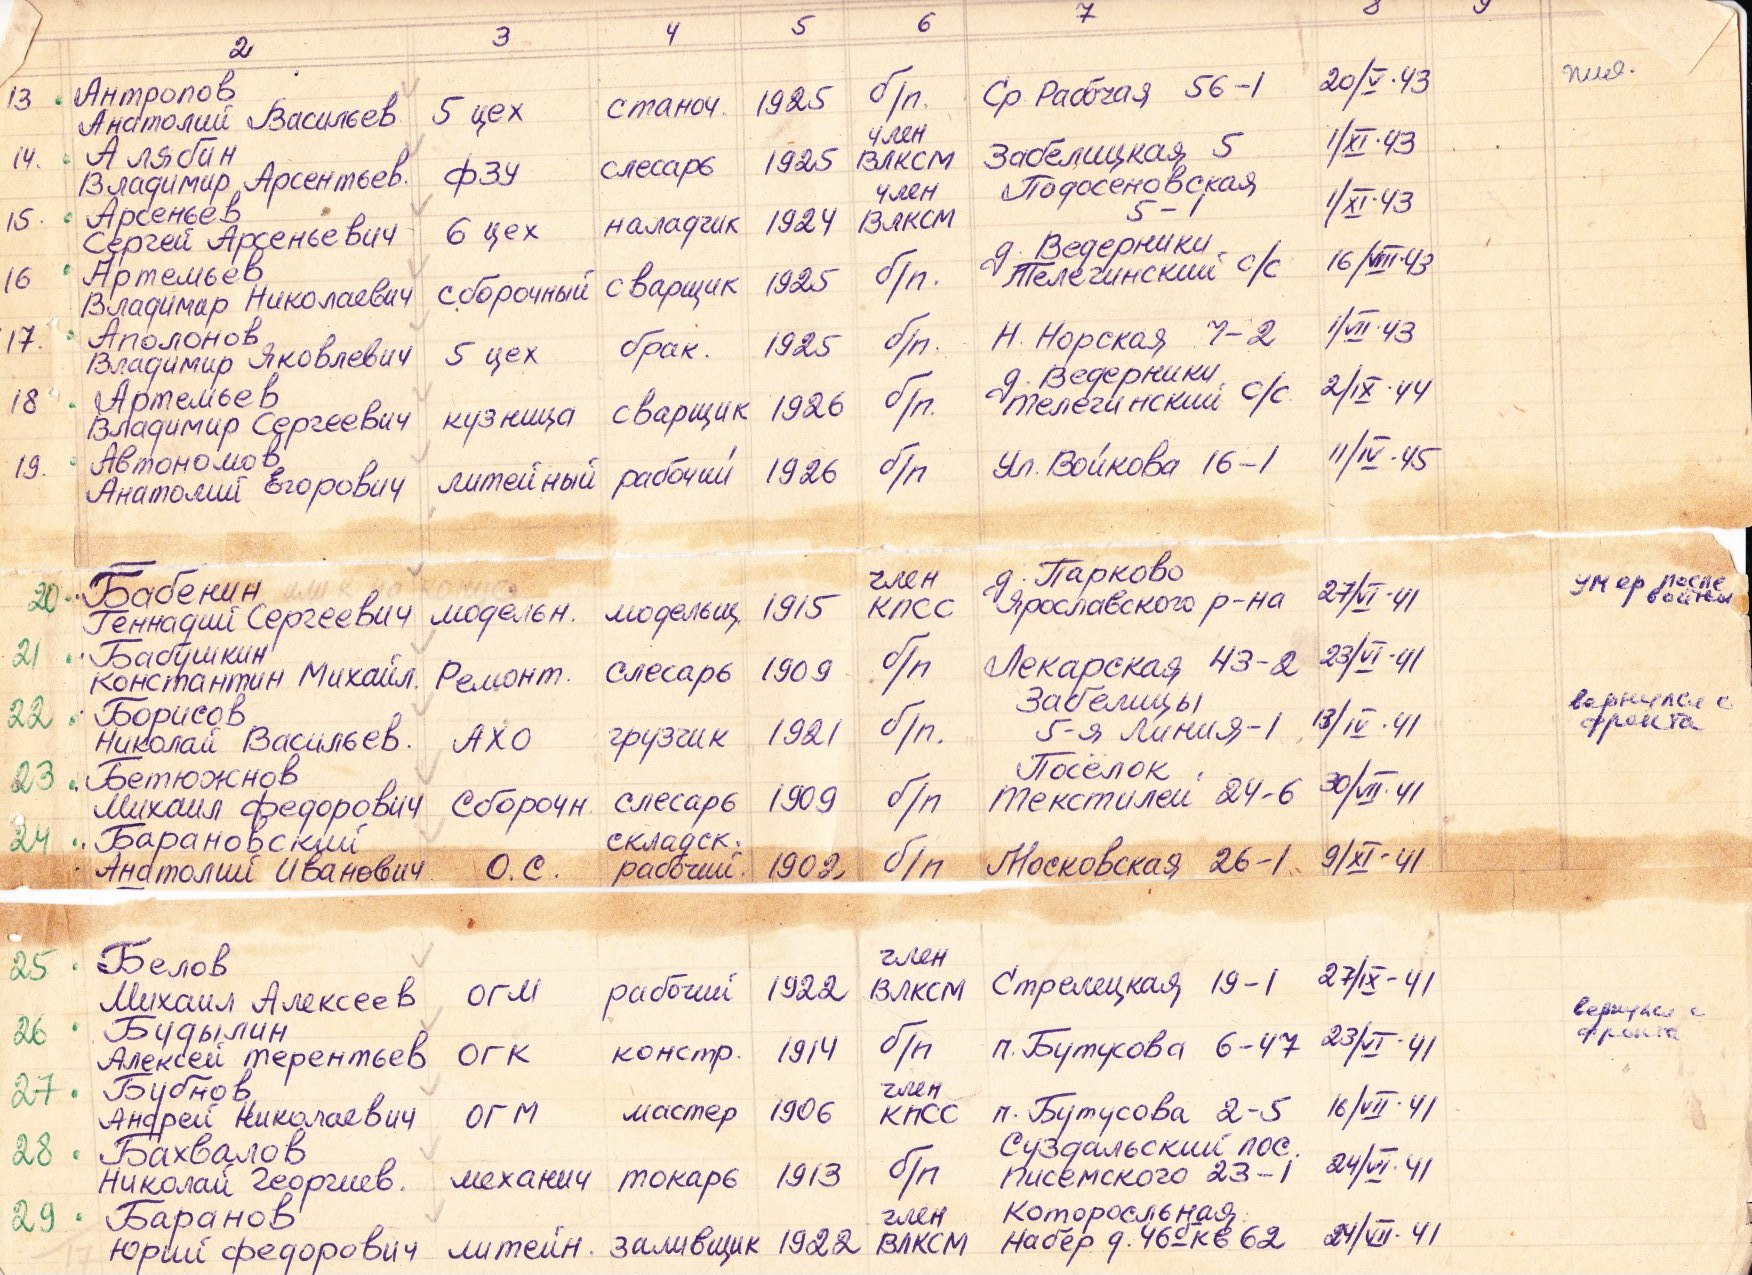 2 3 4 5 6 7 8 9
13 Антропов
Анатолий Васильев 5 цех станоч. 1925 б/п. Ср Рабочая 56-1 20/V·43
14. Алябин член
Владимир Арсентьев. ФЗУ слесарь 1925 ВЛКСМ Забелицкая 5 1/XI·43
15. Арсеньев член Подосеновская
Сергей Арсеньевич 6 цех наладчик 1924 ВЛКСМ 5-1 1/XI·43
16 Артемьев д. Ведерники
Владимир Николаевич сборочный сварщик 1925 б/п. Телегинский с/с 16/VIII·43
17. Аполонов
Владимир Яковлевич 5 цех брак. 1925 б/п. Н. Норская 7-2 1/VII·43
18 Артемьев д. Ведерники
Владимир Сергеевич кузница сварщик 1926 б/п. Телегинский с/с 2/IX·44
19. Автономов
Анатолий Егорович литейный рабочий 1926 б/п Ул. Войкова 16-1 11/IV·45
20 Бабенин член д. Парково умер после
Геннадий Сергеевич модельн. модельщ 1915 КПСС Ярославского р-на 27/VI-41 войны
21 Бабушкин
Константин Михайл. Ремонт. слесарь 1909 б/п Лекарская 43-2 23/VI-41
22 Борисов Забелицы вернулся с
Николай Васильев. АХО грузчик 1921 б/п. 5-я Линия-1 13/IV·41 фронта
23 Бетюжнов Посёлок
Михаил Федорович Сборочн. слесарь 1909 б/п Текстилей 24-6 30/VII·41
24 Барановский складск.
Анатолий Иванович О.С. рабочий. 1902 б/п Московская 26-1 9/XI-41
25 Белов член
Михаил Алексеев ОГМ рабочий 1922 ВЛКСМ Стрелецкая 19-1 27/IX-41
26 Будылин вернулся с
Алексей Терентьев ОГК констр. 1914 б/п п. Бутусова 6-47 23/VI·41 фронта
27 Бубнов член
Андрей Николаевич ОГМ мастер 1906 КПСС п. Бутусова 2-5 16/VII·41
28 Бахвалов Суздальский пос.
Николай Георгиев. механич токарь 1913 б/п Писемского 23-1 24/VI·41
29 Баранов член Которосльная
Юрий Федорович литейн. заливщик 1922 ВЛКСМ набер д. 46б кв 62 24/VII·41